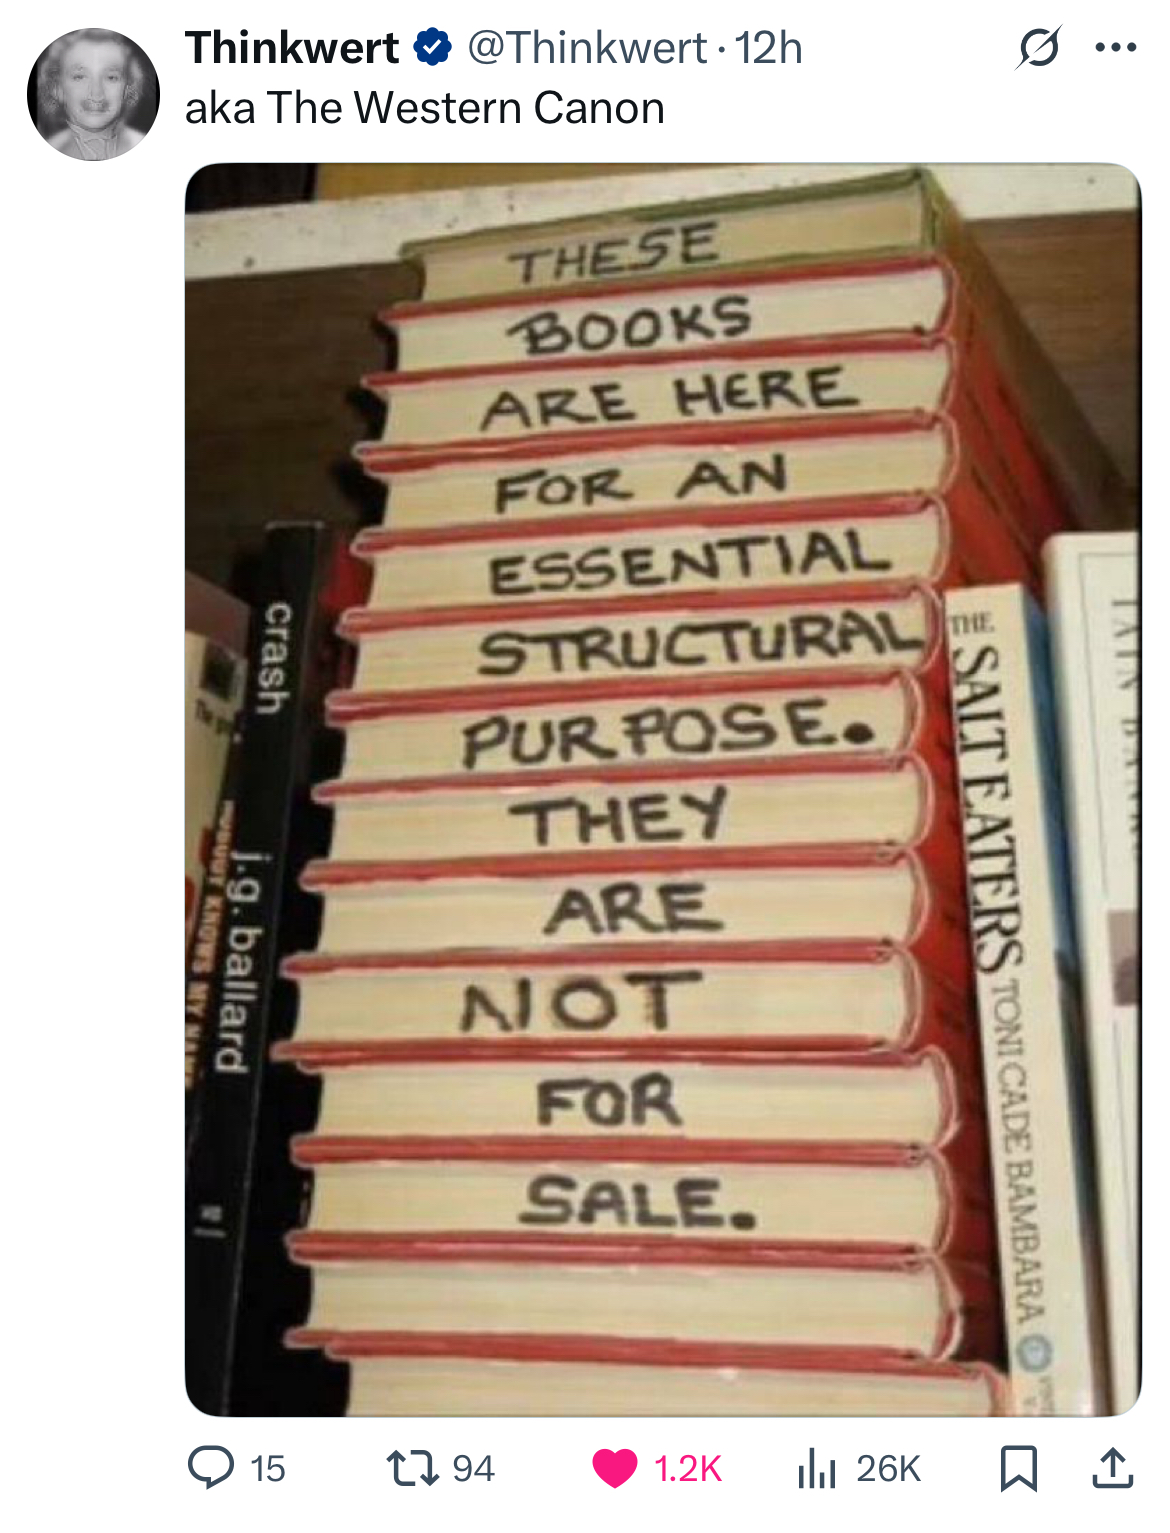 Thinkwert @Thinkwert · 12h
aka The Western Canon
THESE
BOOKS
ARE HERE
FOR AN
ESSENTIAL
STRUCTURAL
PURPOSE.
THEY
ARE
NOT
FOR
SALE.
crash
j.g. ballard
NOBODY KNOWS MY NAME
THE
SALT EATERS TONI CADE BAMBARA
15 94 1.2K 26K